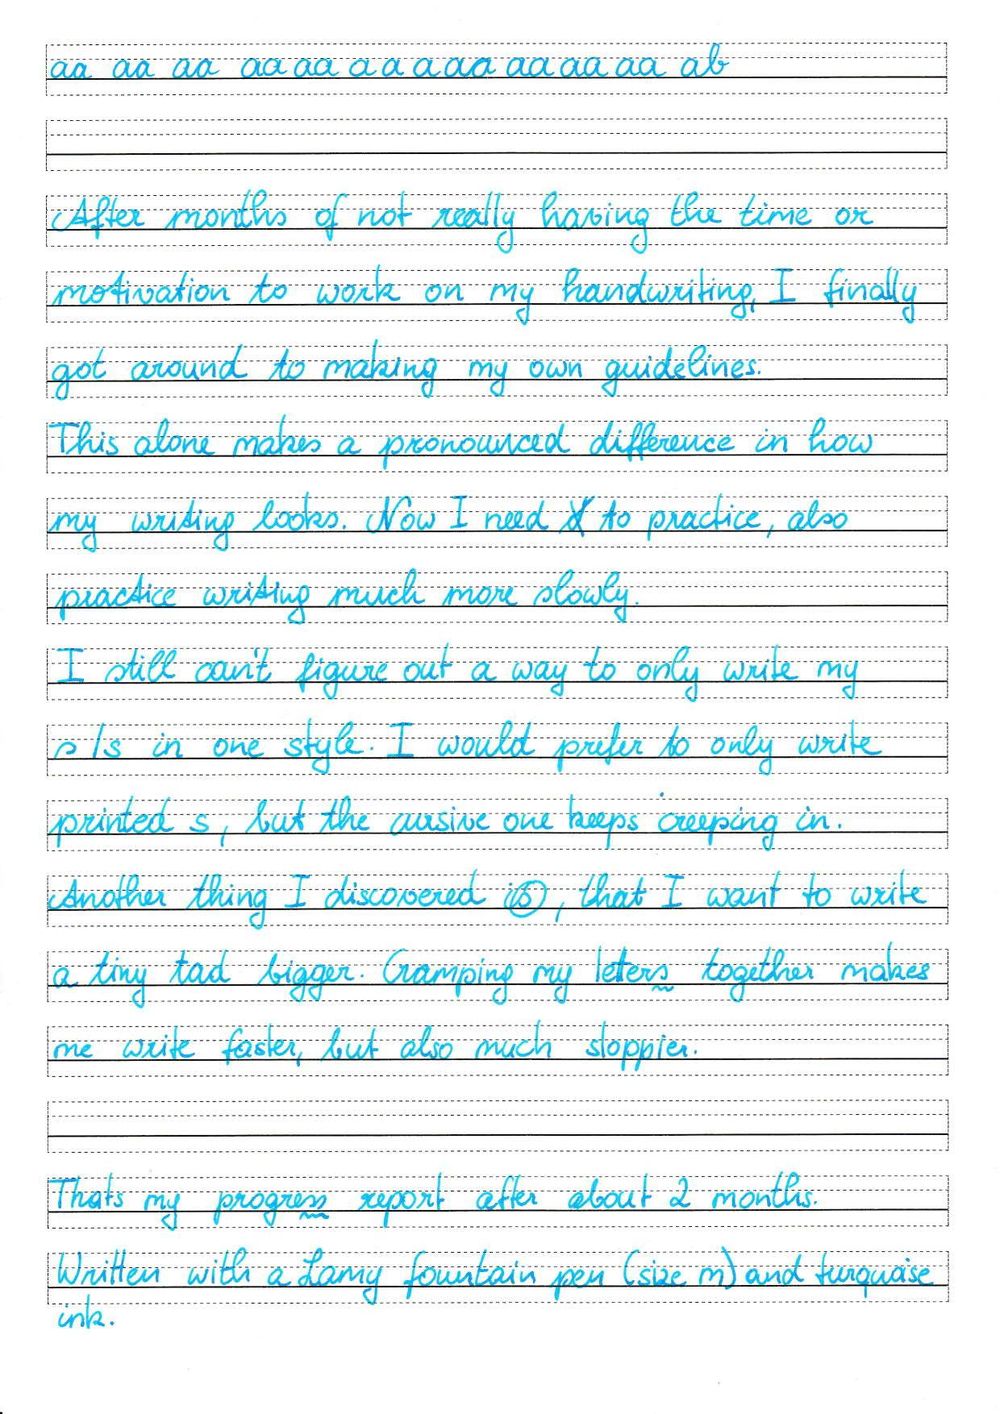 aa aa aa aa aa a a a aa aa aa aa ab
After months of not really having the time or
motivation to work on my handwriting, I finally
got around to making my own guidelines.
This alone makes a pronounced difference in how
my writing looks. Now I need to practice, also
practice writing much more slowly.
I still can't figure out a way to only write my
s/s in one style. I would prefer to only write
printed s, but the cursive one keeps creeping in.
Another thing I discovered is, that I want to write
a tiny tad bigger. Cramping my leters together makes
me write faster, but also much sloppier.
Thats my progress report after about 2 months.
Written with a Lamy fountain pen (size m) and turquoise
ink.